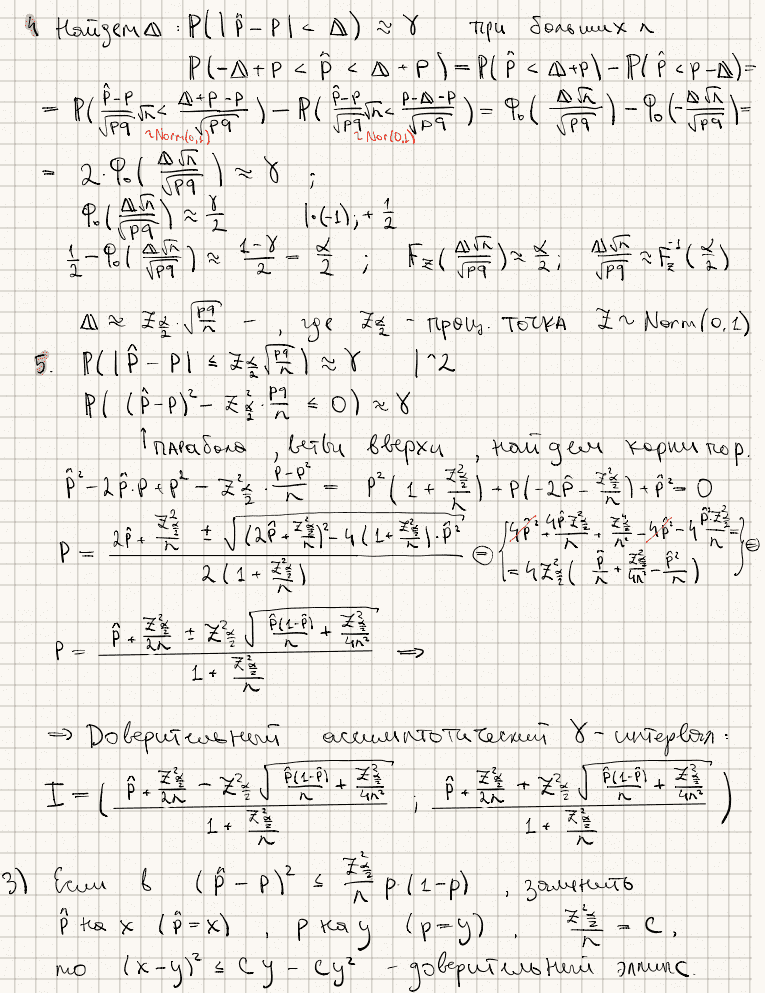 4 Найдем Δ : P(|p̂ - p| < Δ) ≈ γ при больших n
P(-Δ + p < p̂ < Δ + p) = P(p̂ < Δ+p) - P(p̂ < p-Δ) =
= P( (p̂-p)/√(pq) √n < (Δ+p-p)/√(pq) ) - P( (p̂-p)/√(pq) √n < (p-Δ-p)/√(pq) ) = Φ₀( Δ√n/√(pq) ) - Φ₀( -Δ√n/√(pq) ) =
~Norm(0,1) ~Nor(0,1)
= 2·Φ₀( Δ√n/√(pq) ) ≈ γ ;
Φ₀( Δ√n/√(pq) ) ≈ γ/2 |·(-1); + 1/2
1/2 - Φ₀( Δ√n/√(pq) ) ≈ (1-γ)/2 = α/2 ; F_z( Δ√n/√(pq) ) ≈ α/2 ; Δ√n/√(pq) ≈ F_z⁻¹(α/2)
Δ ≈ z_{α/2} · √(pq/n) - , где z_{α/2} - проц. точка Z ~ Norm(0,1)
5. P(|p̂ - p| ≤ z_{α/2} √(pq/n)) ≈ γ |^2
P( (p̂-p)² - z²_{α/2} · pq/n ≤ 0 ) ≈ γ
↑ парабола, ветви вверх, найдем корни пар.
p̂² - 2p̂·p + p² - z²_{α/2} · (p-p²)/n = p²(1 + z²_{α/2}/n) + p(-2p̂ - z²_{α/2}/n) + p̂² = 0
p = ( 2p̂ + z²_{α/2}/n ± √( (2p̂ + z²_{α/2}/n)² - 4(1 + z²_{α/2}/n)·p̂² ) ) / ( 2(1 + z²_{α/2}/n) ) ⊜ { 4p̂² + 4p̂z²_{α/2}/n + z⁴_{α/2}/n² - 4p̂² - 4 p̂²·z²_{α/2}/n =
= 4z²_{α/2}( p̂/n + z²_{α/2}/4n² - p̂²/n ) } ⊜
p = ( p̂ + z²_{α/2}/2n ± z²_{α/2} √( p̂(1-p̂)/n + z²_{α/2}/4n² ) ) / ( 1 + z²_{α/2}/n ) ⇒
⇒ Доверительный ассимптотический γ-интервал:
I = ( ( p̂ + z²_{α/2}/2n - z²_{α/2} √( p̂(1-p̂)/n + z²_{α/2}/4n² ) ) / ( 1 + z²_{α/2}/n ) ; ( p̂ + z²_{α/2}/2n + z²_{α/2} √( p̂(1-p̂)/n + z²_{α/2}/4n² ) ) / ( 1 + z²_{α/2}/n ) )
3) Если в (p̂ - p)² ≤ z²_{α/2}/n p·(1-p) , заменить
p̂ на x (p̂=x) , p на y (p=y) , z²_{α/2}/n = C,
то (x-y)² ≤ Cy - Cy² - доверительный эллипс.